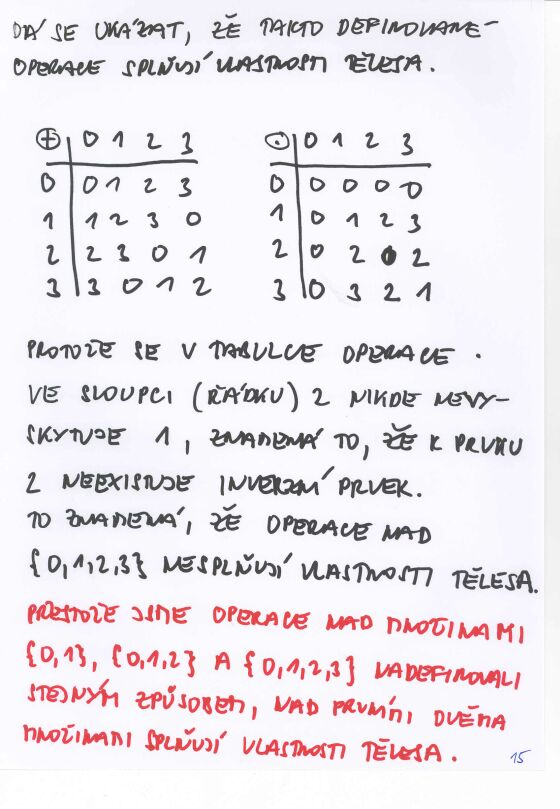 DÁ SE UKÁZAT, ŽE TAKTO DEFINOVANÉ
OPERACE SPLŇUJÍ VLASTNOSTI TĚLESA.
⊕ 0 1 2 3
0 0 1 2 3
1 1 2 3 0
2 2 3 0 1
3 3 0 1 2
⊙ 0 1 2 3
0 0 0 0 0
1 0 1 2 3
2 0 2 0 2
3 0 3 2 1
PROTOŽE SE V TABULCE OPERACE ·
VE SLOUPCI (ŘÁDKU) 2 NIKDE NEVY-
SKYTUJE 1, ZNAMENÁ TO, ŽE K PRVKU
2 NEEXISTUJE INVERZNÍ PRVEK.
TO ZNAMENÁ, ŽE OPERACE NAD
{0,1,2,3} NESPLŇUJÍ VLASTNOSTI TĚLESA.
PŘESTOŽE JSME OPERACE NAD MNOŽINAMI
{0,1}, {0,1,2} A {0,1,2,3} NADEFINOVALI
STEJNÝM ZPŮSOBEM, NAD PRVNÍMI DVĚMA
MNOŽINAMI SPLŇUJÍ VLASTNOSTI TĚLESA.
15